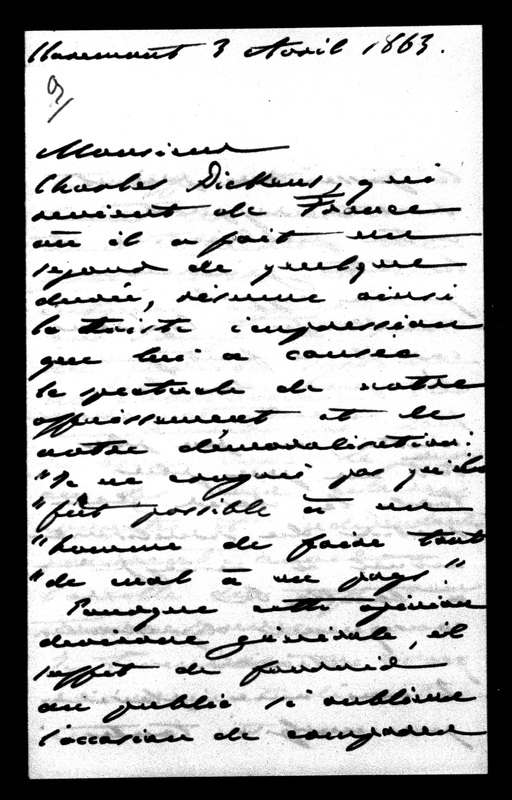 Claremont 3 Avril 1863.
9/
Monsieur
Charles Dickens, qui
revient de France
où il a fait un
séjour de quelque
durée, résume ainsi
la triste impression
que lui a causée
le spectacle de notre
affaissement et de
notre démoralisation:
"Je ne conçois pas qu'il
"fût possible à un
"homme de faire tant
"de mal à un pays."
Pour que cette opinion
devienne générale, il
suffit de fournir
au public si oublieux
l'occasion de comparer